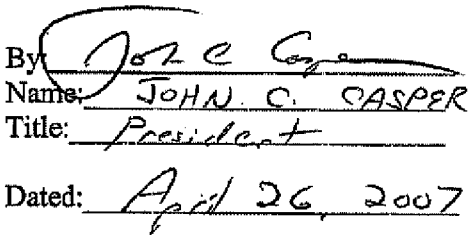 By: John C Casper
Name: JOHN. C. CASPER
Title: President
Dated: April 26, 2007